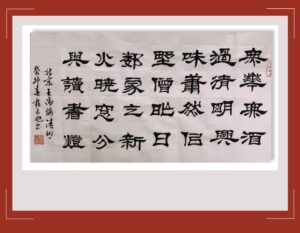 無華無酒
過清明興
味蕭然佀
野僧昨日
鄰家乞新
火曉窗分
與讀書燈
北宋王禹偁清明
癸卯春